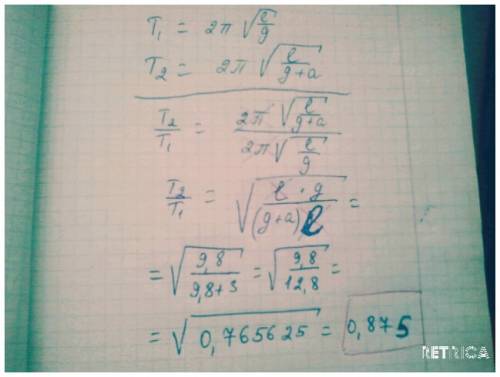 T₁ = 2π √(l/g)
T₂ = 2π √(l/(g+a))
T₂/T₁ = (2π √(l/(g+a)))/(2π √(l/g))
T₂/T₁ = √((l·g)/((g+a)l)) =
= √(9,8/(9,8+3)) = √(9,8/12,8) =
= √(0,765625) = 0,875
RETRICA